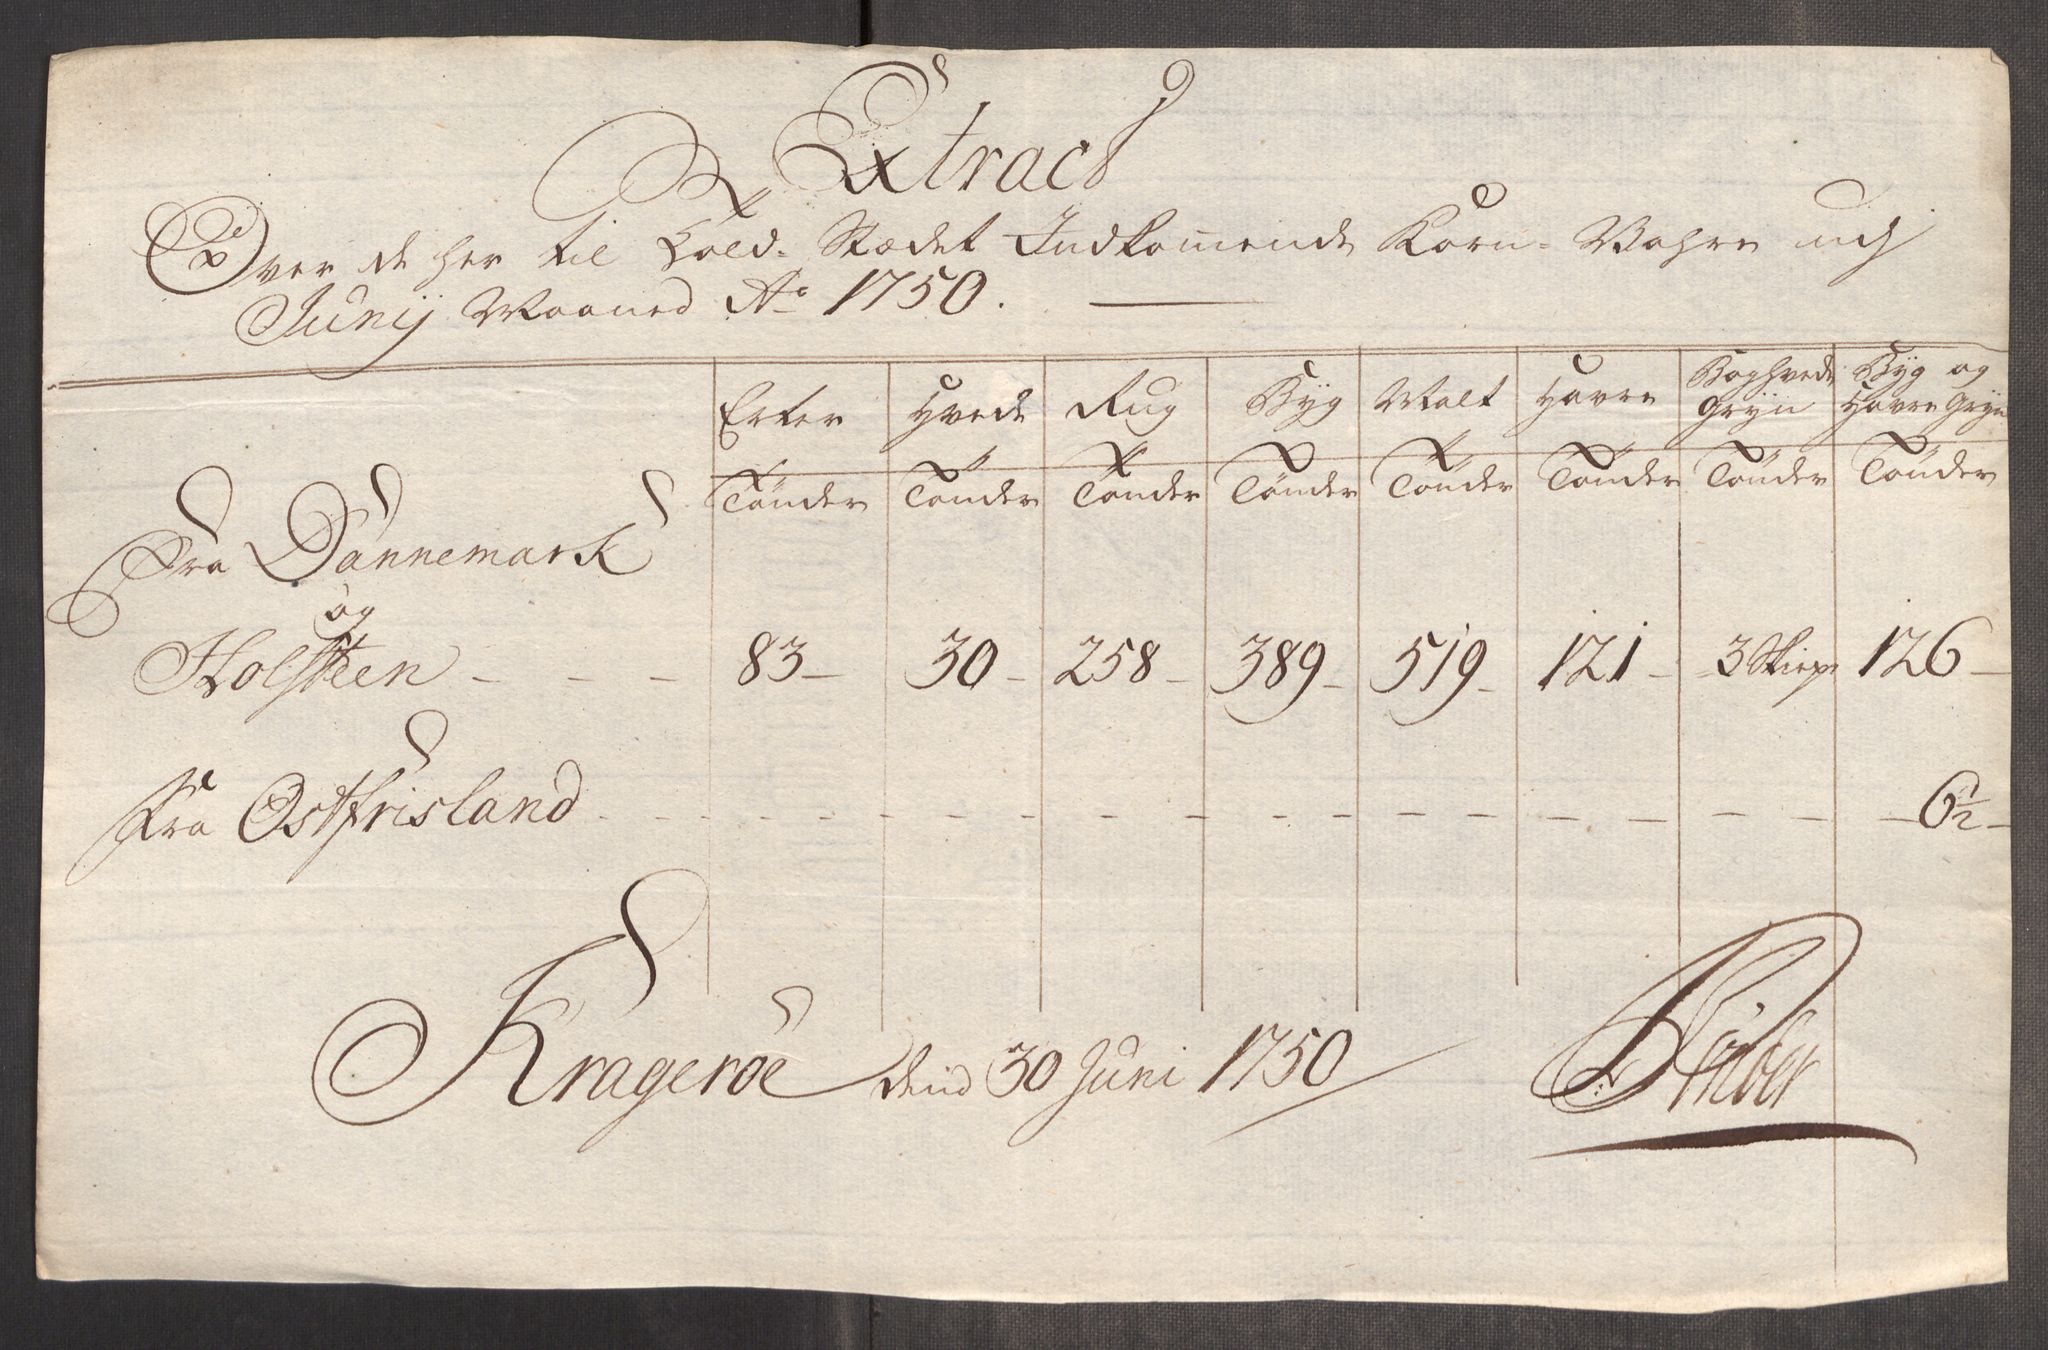 Extract
Over de her til Told-Stædet Indkommende Korn-Vahre udj
Junij Maaned Ao 1750.
Erter Hvede Rug Byg Malt Havre Boghvede Gryn Byg og Havre Gryn
Tønder Tønder Tønder Tønder Tønder Tønder Tønder Tønder
Fra Dannemark
og
Holsteen - - - 83 - 30 - 258 - 389 - 519 - 121 - 3 Skiep 126 -
Fra Ostfrisland - - - - - - - - 6½ -
Krageröe dend 30 Juni 1750